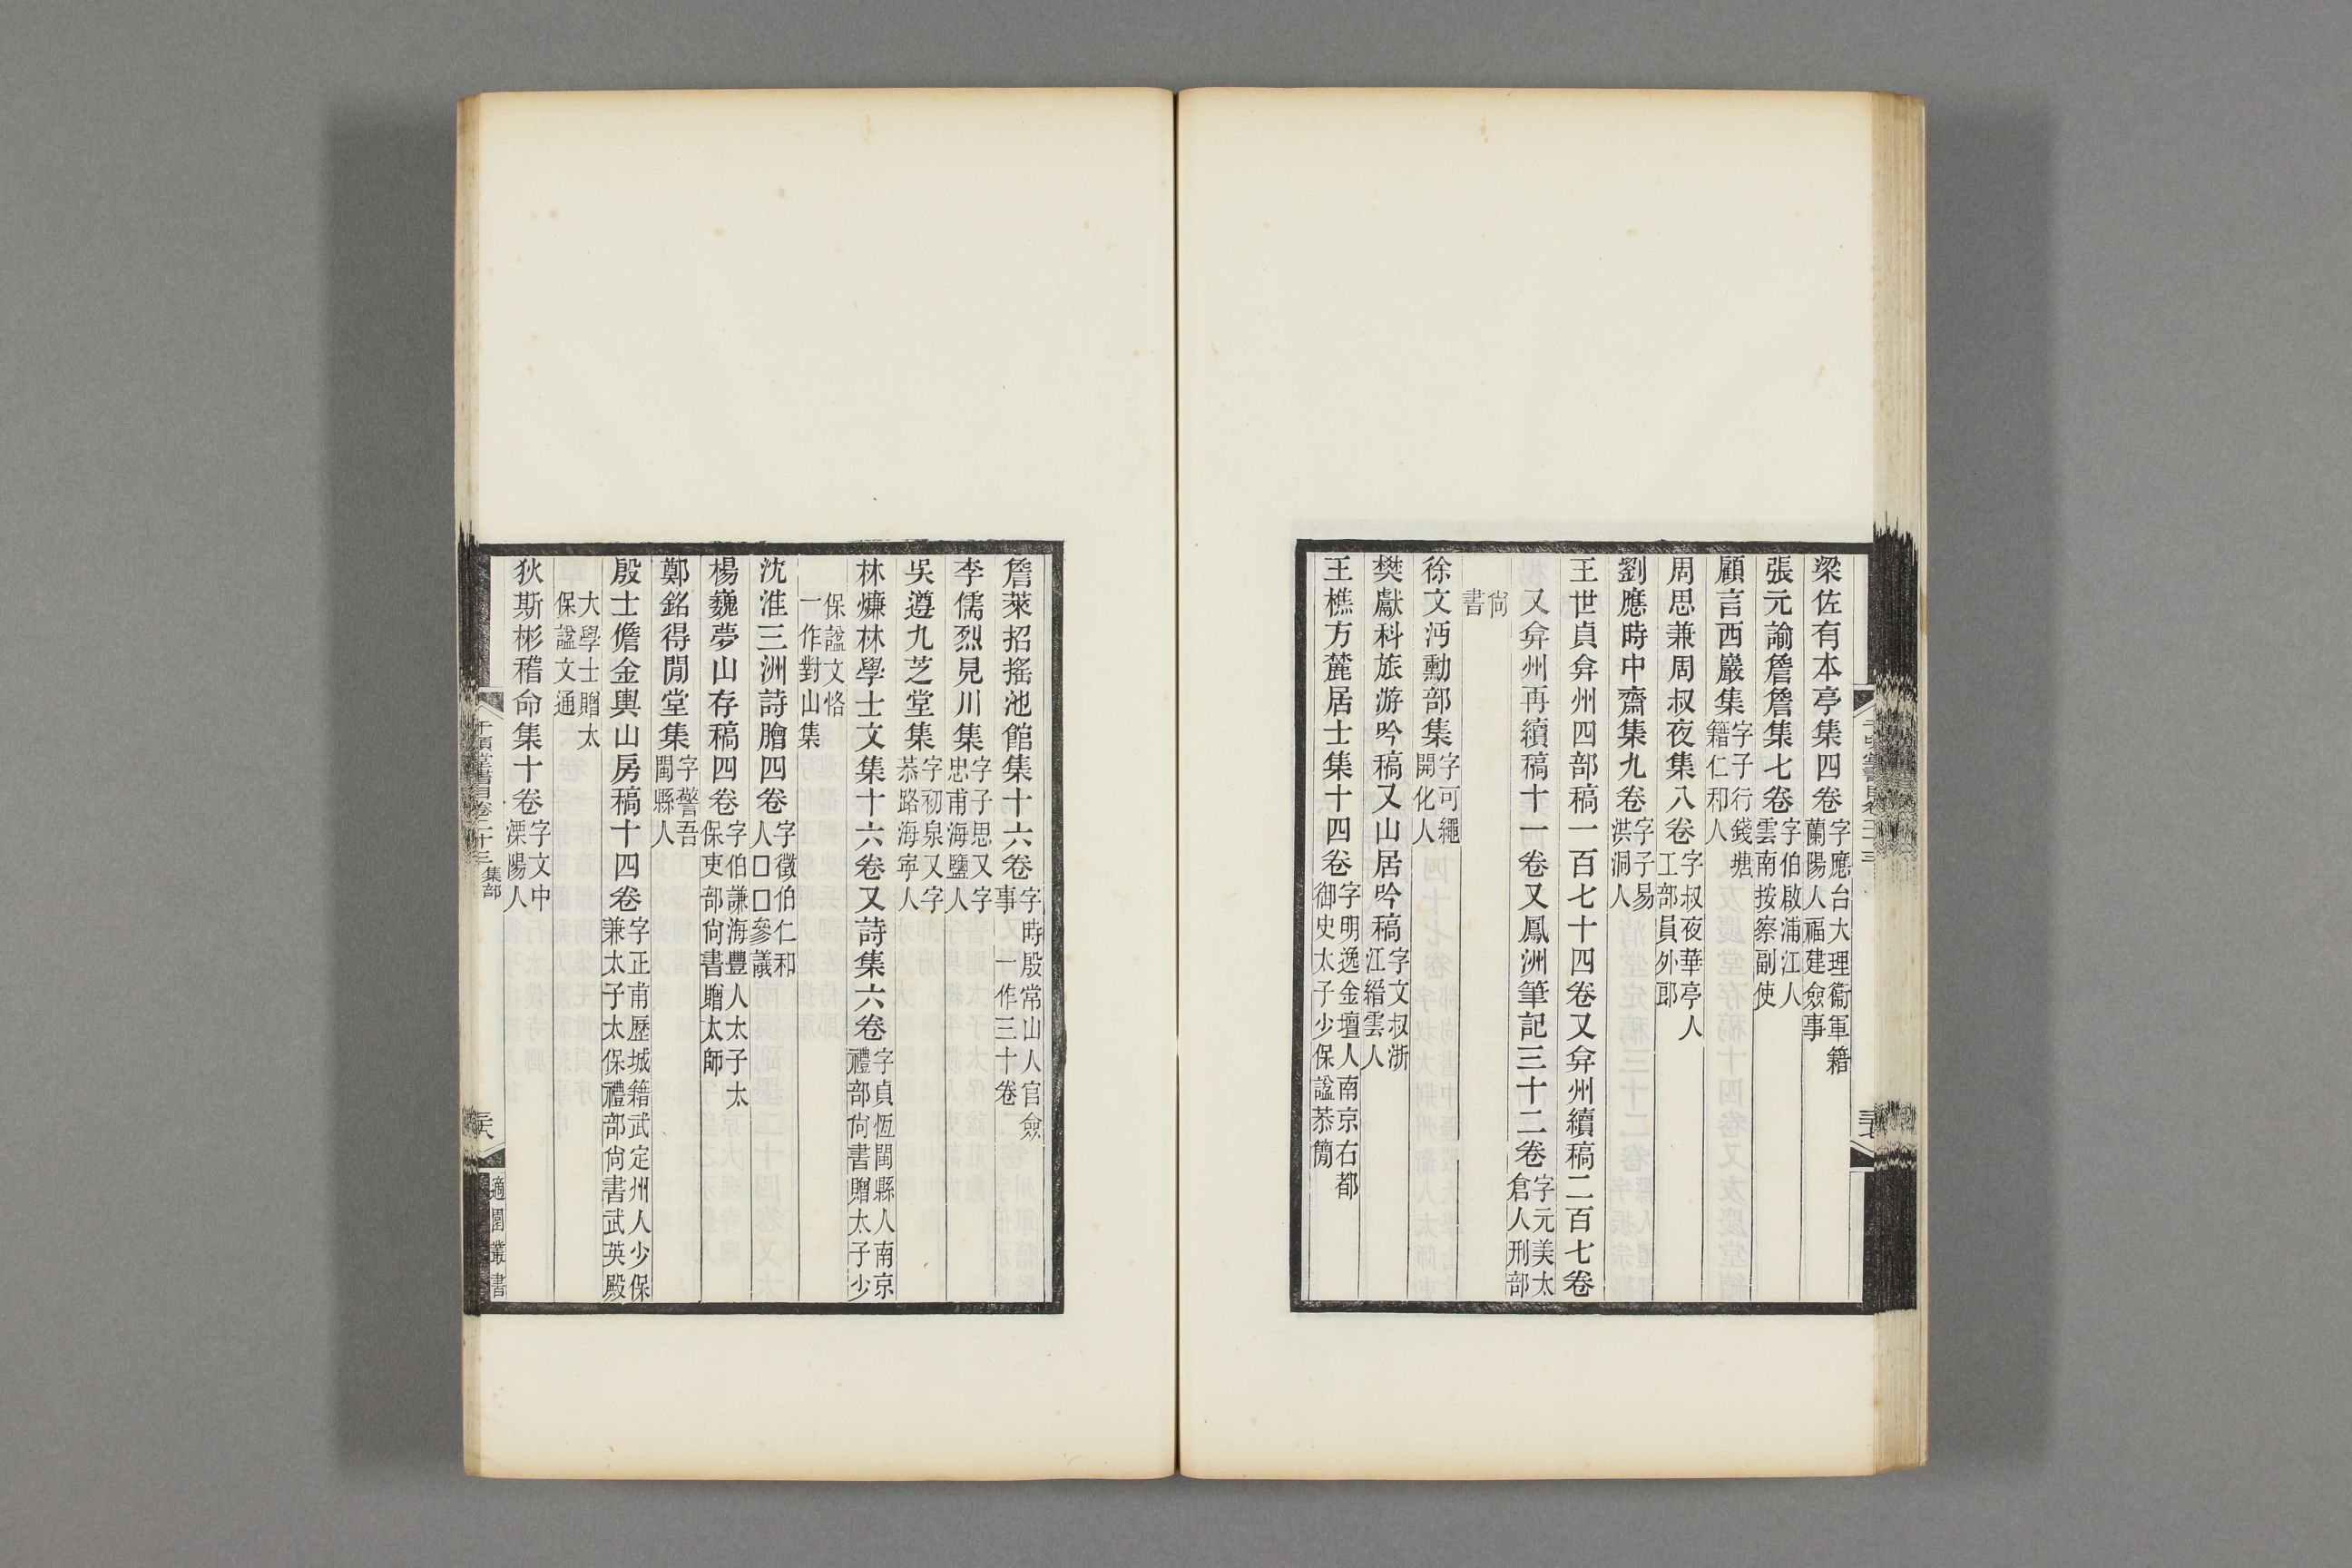 梁佐有本亭集四卷字應台大理衞軍籍蘭陽人福建僉事
張元諭詹詹集七卷字伯啟浦江人雲南按察副使
顧言西巖集字子行錢塘籍仁和人
周思兼周叔夜集八卷字叔夜華亭人工部員外郎
劉應時中齋集九卷字子易洪洞人
王世貞弇州四部稿一百七十四卷又弇州續稿二百七卷
又弇州再續稿十一卷又鳳洲筆記三十二卷字元美太倉人刑部
尙書
徐文沔勳部集字可繩開化人
樊獻科旅游吟稿又山居吟稿字文叔浙江縉雲人
王樵方麓居士集十四卷字明逸金壇人南京右都御史太子少保諡恭簡
詹萊招搖池館集十六卷字時殷常山人官僉事一作三十卷
李儒烈見川集字子思又字忠甫海鹽人
吳遵九芝堂集字初泉又字恭路海寧人
林爌林學士文集十六卷又詩集六卷字貞恆閩縣人南京禮部尙書贈太子少
保諡文恪一作對山集
沈淮三洲詩膾四卷字徵伯仁和人□□□參議
楊巍夢山存稿四卷字伯謙海豐人太子太保吏部尙書贈太師
鄭銘得閒堂集字警吾閩縣人
殷士儋金輿山房稿十四卷字正甫歷城籍武定州人少保兼太子太保禮部尙書武英殿
大學士贈太保諡文通
狄斯彬稽命集十卷字文中溧陽人
千頃堂書目卷二十三 集部
三十八
適園叢書